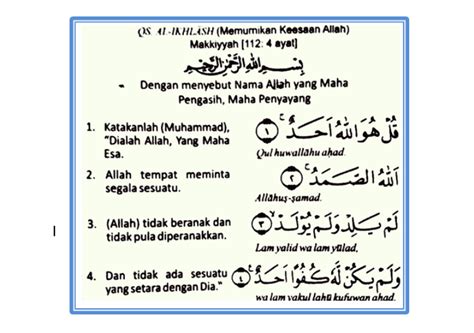 QS. AL-IKHLÂSH (Memurnikan Keesaan Allah)
Makkiyyah [112: 4 ayat]
بِسْمِ اللهِ الرَّحْمٰنِ الرَّحِيْمِ
Dengan menyebut Nama Allah yang Maha
Pengasih, Maha Penyayang
1. Katakanlah (Muhammad),
"Dialah Allah, Yang Maha
Esa.
قُلْ هُوَ اللهُ أَحَدٌ ۚ ﴿١﴾
Qul huwallâhu ahad.
2. Allah tempat meminta
segala sesuatu.
اَللهُ الصَّمَدُ ۚ ﴿٢﴾
Allâhuṣ-ṣamad.
3. (Allah) tidak beranak dan
tidak pula diperanakkan.
لَمْ يَلِدْ وَلَمْ يُوْلَدْ ۙ ﴿٣﴾
Lam yalid wa lam yûlad,
4. Dan tidak ada sesuatu
yang setara dengan Dia."
وَلَمْ يَكُنْ لَّهٗ كُفُوًا أَحَدٌ ۚ ﴿٤﴾
wa lam yakul lahû kufuwan ahad.